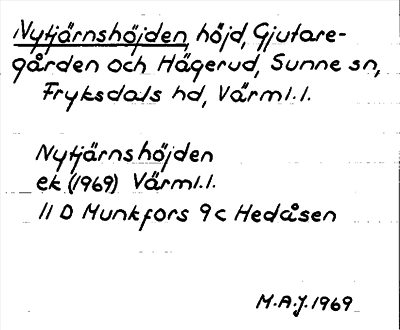 Nytjärnshöjden, höjd, Gjutare-
gården och Hägerud, Sunne sn,
Fryksdals hd, Värml.l.
Nytjärnshöjden
ek (1969) Värml.l.
11 D Munkfors 9c Hedåsen
M.A.J. 1969